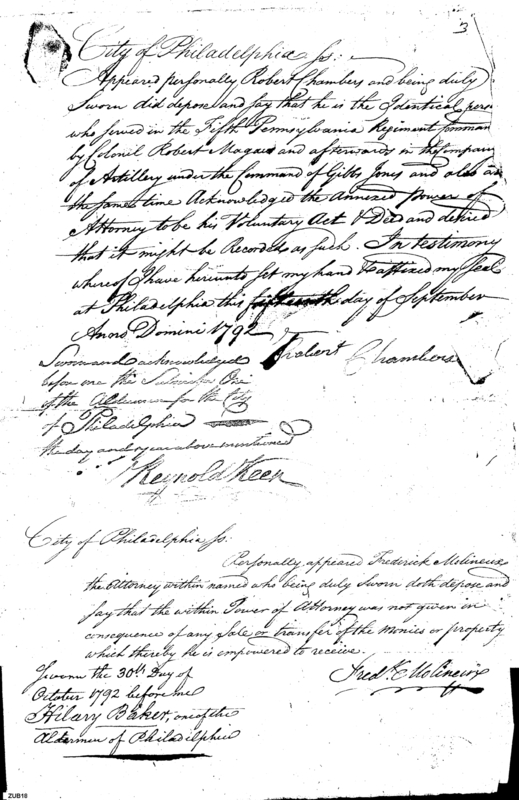 3
City of Philadelphia ss:
Appeared personally Robert Chambers and being duly
Sworn did depose and say that he is the Identical pers
who served in the Fifth Pennsylvania Regiment Comman
by Colonel Robert Magaw and afterwards in the Company
of Artillery under the Command of Gibbs Jones and also at
the same time Acknowledged the Annexed power of
Attorney to be his Voluntary Act & Deed and desired
that it might be Recorded as such. In testimony
whereof I have hereunto set my hand & affixed my Seal
at Philadelphia this fifteenth day of September
Anno Domini 1792
Robert Chambers
Sworn and acknowledged
before me the Subscriber One
of the Aldermen for the City
of Philadelphia
the day and year above mentioned
Reynold Keen
City of Philadelphia ss:
Personally appeared Frederick Molineux
the Attorney within named who being duly Sworn doth depose and
say that the within Power of Attorney was not given in
consequence of any Sale or transfer of the monies or property
which thereby he is empowered to receive.
Sworn the 30th Day of
October 1792 before me
Fredk. Molineux
Hilary Baker, one of the
Aldermen of Philadelphia
ZUB18